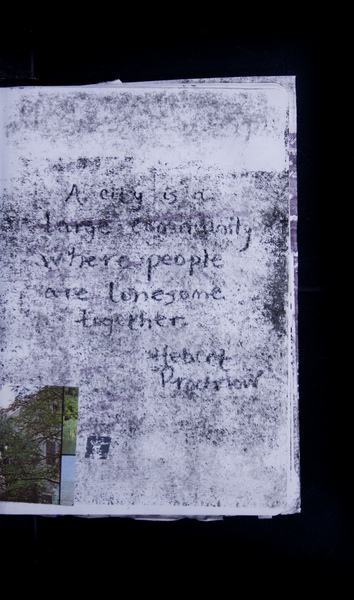 A city is a
large community
where people
are lonesome
together.
Hebert
Prochnow